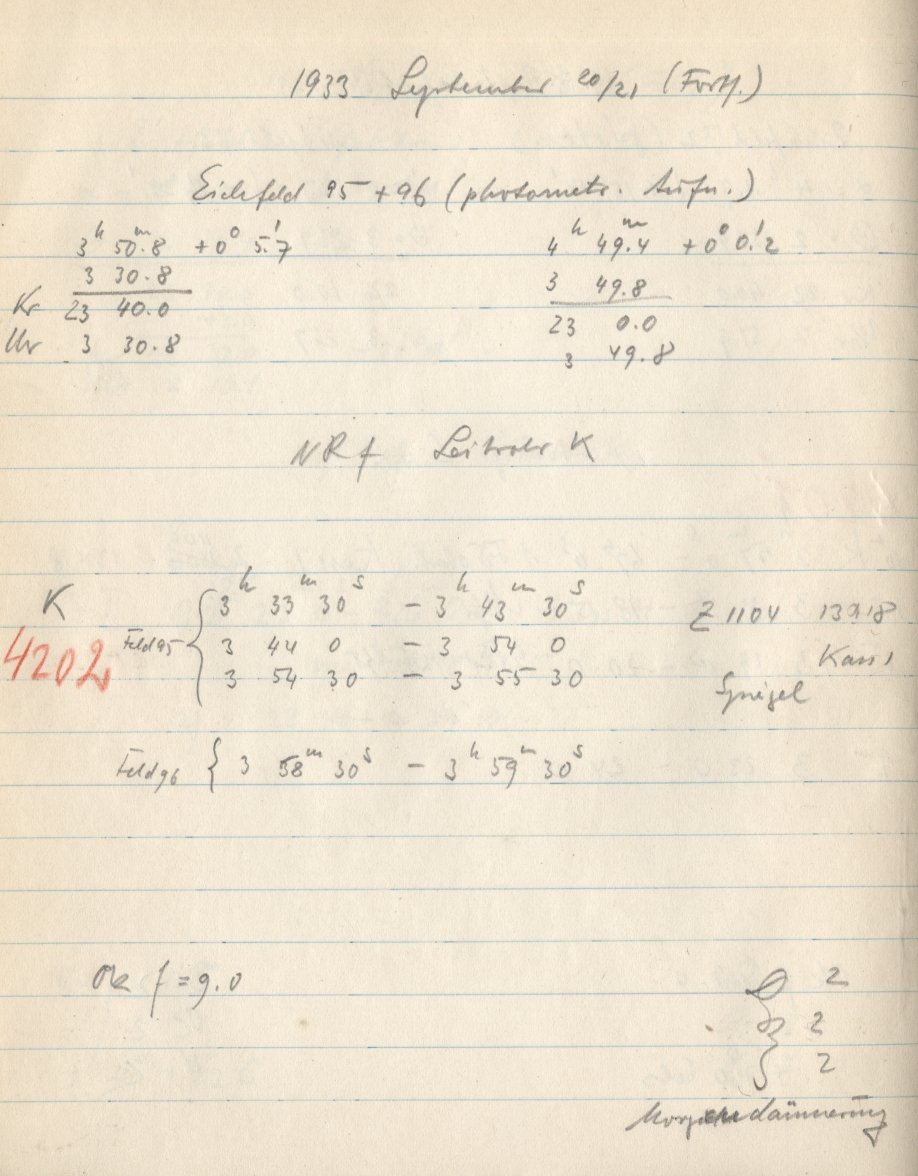 1933 September 20/21 (Forts.)
Eichfeld 95 + 96 (photometr. Aufn.)
3h 50m.8 +0° 5.'7
3 30.8
Kr 23 40.0
Uhr 3 30.8
4h 49m.4 +0° 0.'2
3 49.8
23 0.0
3 49.8
NRf Leitrohr K
K
4202
Feld 95
3h 33m 30s – 3h 43m 30s
3 44 0 – 3 54 0
3 54 30 – 3 55 30
Z 1104 13x18
Kass
Spiegel
Feld 96 { 3 58m 30s – 3h 59m 30s
Ok f = 9.0
2
2
2
Morgendämmerung